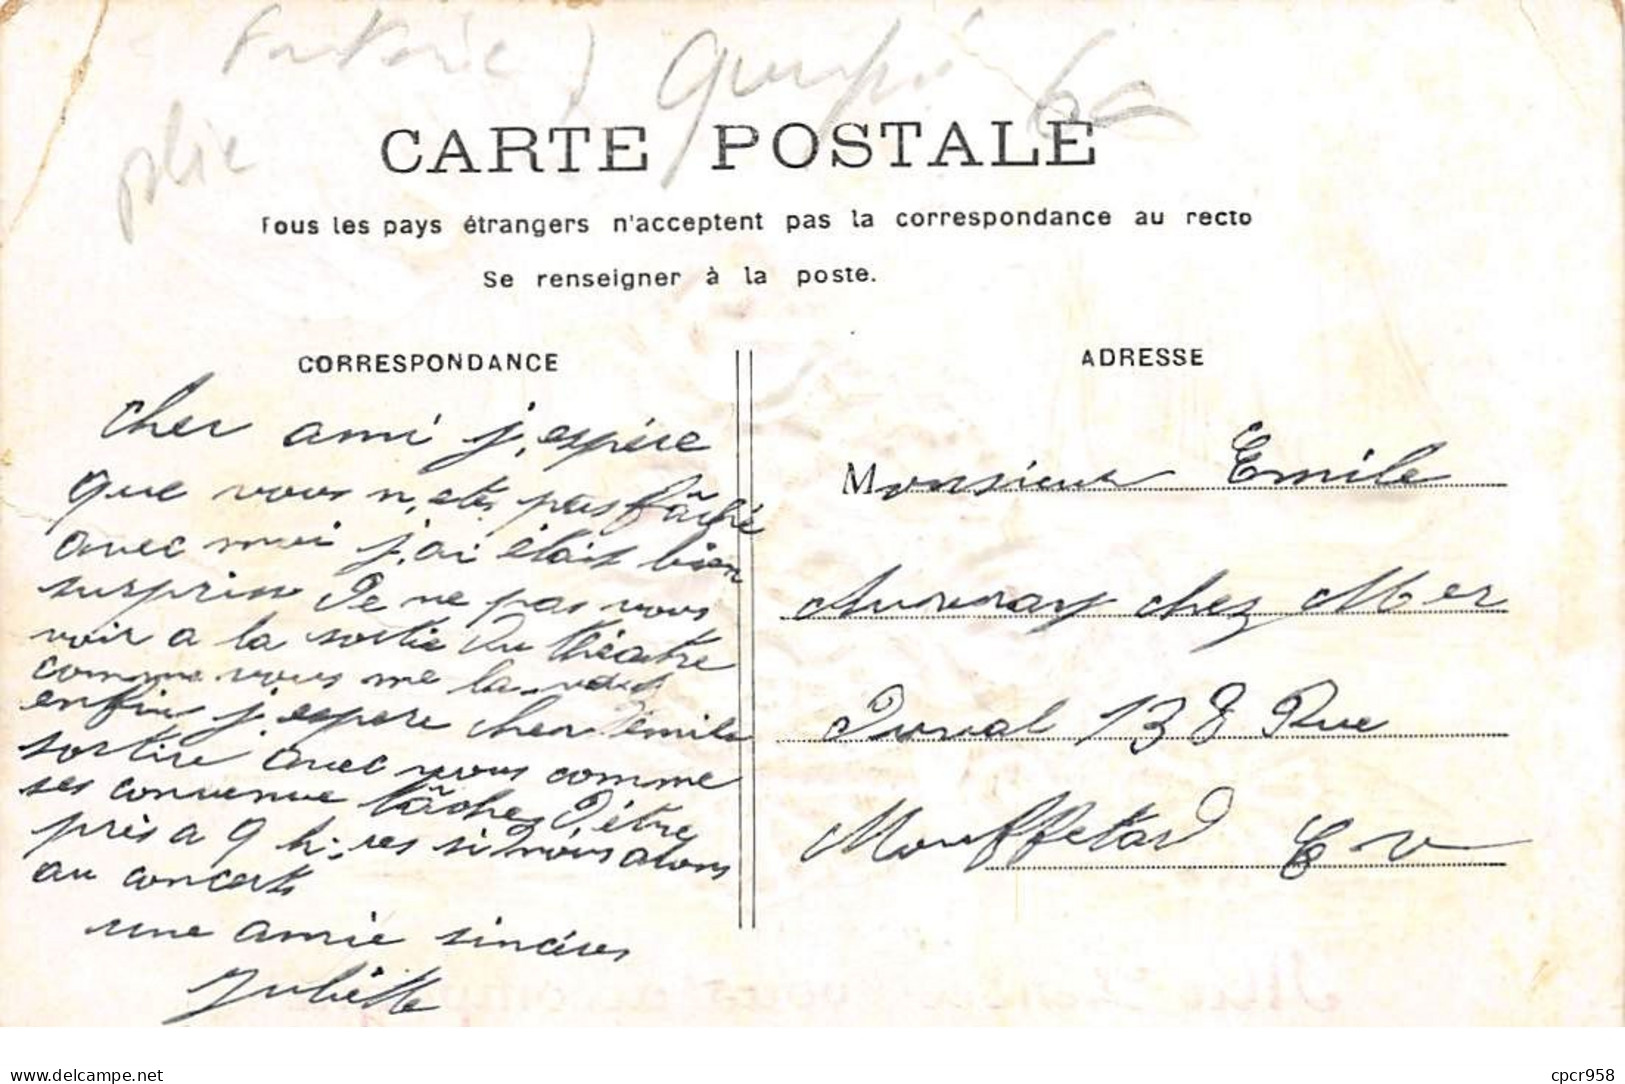 Fantaisie) Gaufré 6e
plic
CARTE POSTALE
Tous les pays étrangers n'acceptent pas la correspondance au recto
Se renseigner à la poste.
CORRESPONDANCE
cher ami j, espère
que vous n, etes pas fâché
avec moi j,ai étais bien
surpriss De ne pas vous
voir a la sortie Du théatre
comme vous me la
enfin j, espere cher émile
sortire avec vous comme
ses convenue tâches D,être
près a 9 h,res si nous alons
au concerts
une amie sincères
Juliette
ADRESSE
Monsieur Emile
Auvray chez Mer
Duval 138 Rue
Mouffetard E V
delcampe.net
cpcr958